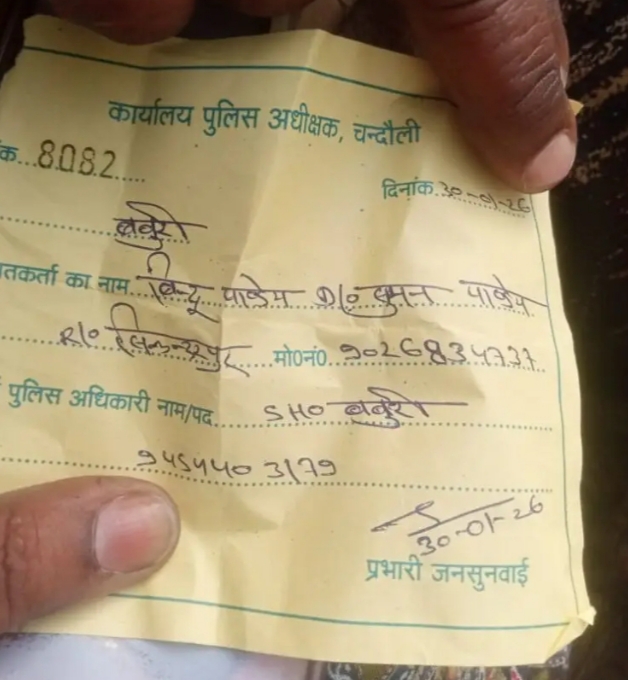 कार्यालय पुलिस अधीक्षक, चन्दौली
क...8082.....
दिनांक.30-01-26
बबुरी
तकर्ता का नाम बिन्दू पाण्डेय D/o सुमन पाण्डेय
R/o मो0नं0. 9026834737
पुलिस अधिकारी नाम/पद SHO बबुरी
9454403179
30-01-26
प्रभारी जनसुनवाई